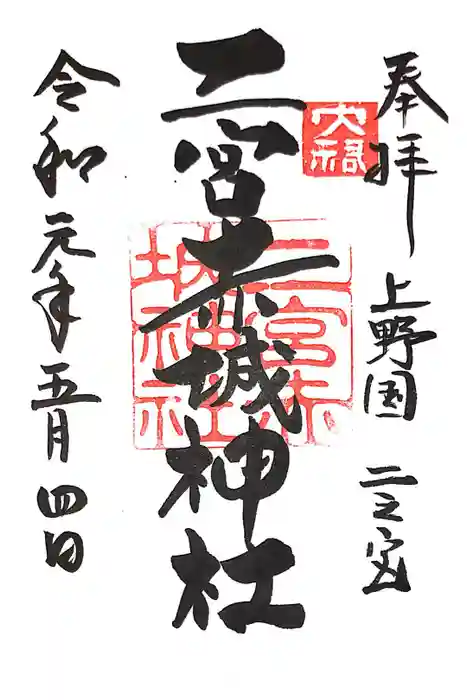 奉拝 上野国 二之宮
二宮赤城神社
令和元年五月四日
大福
二宮赤
城神社